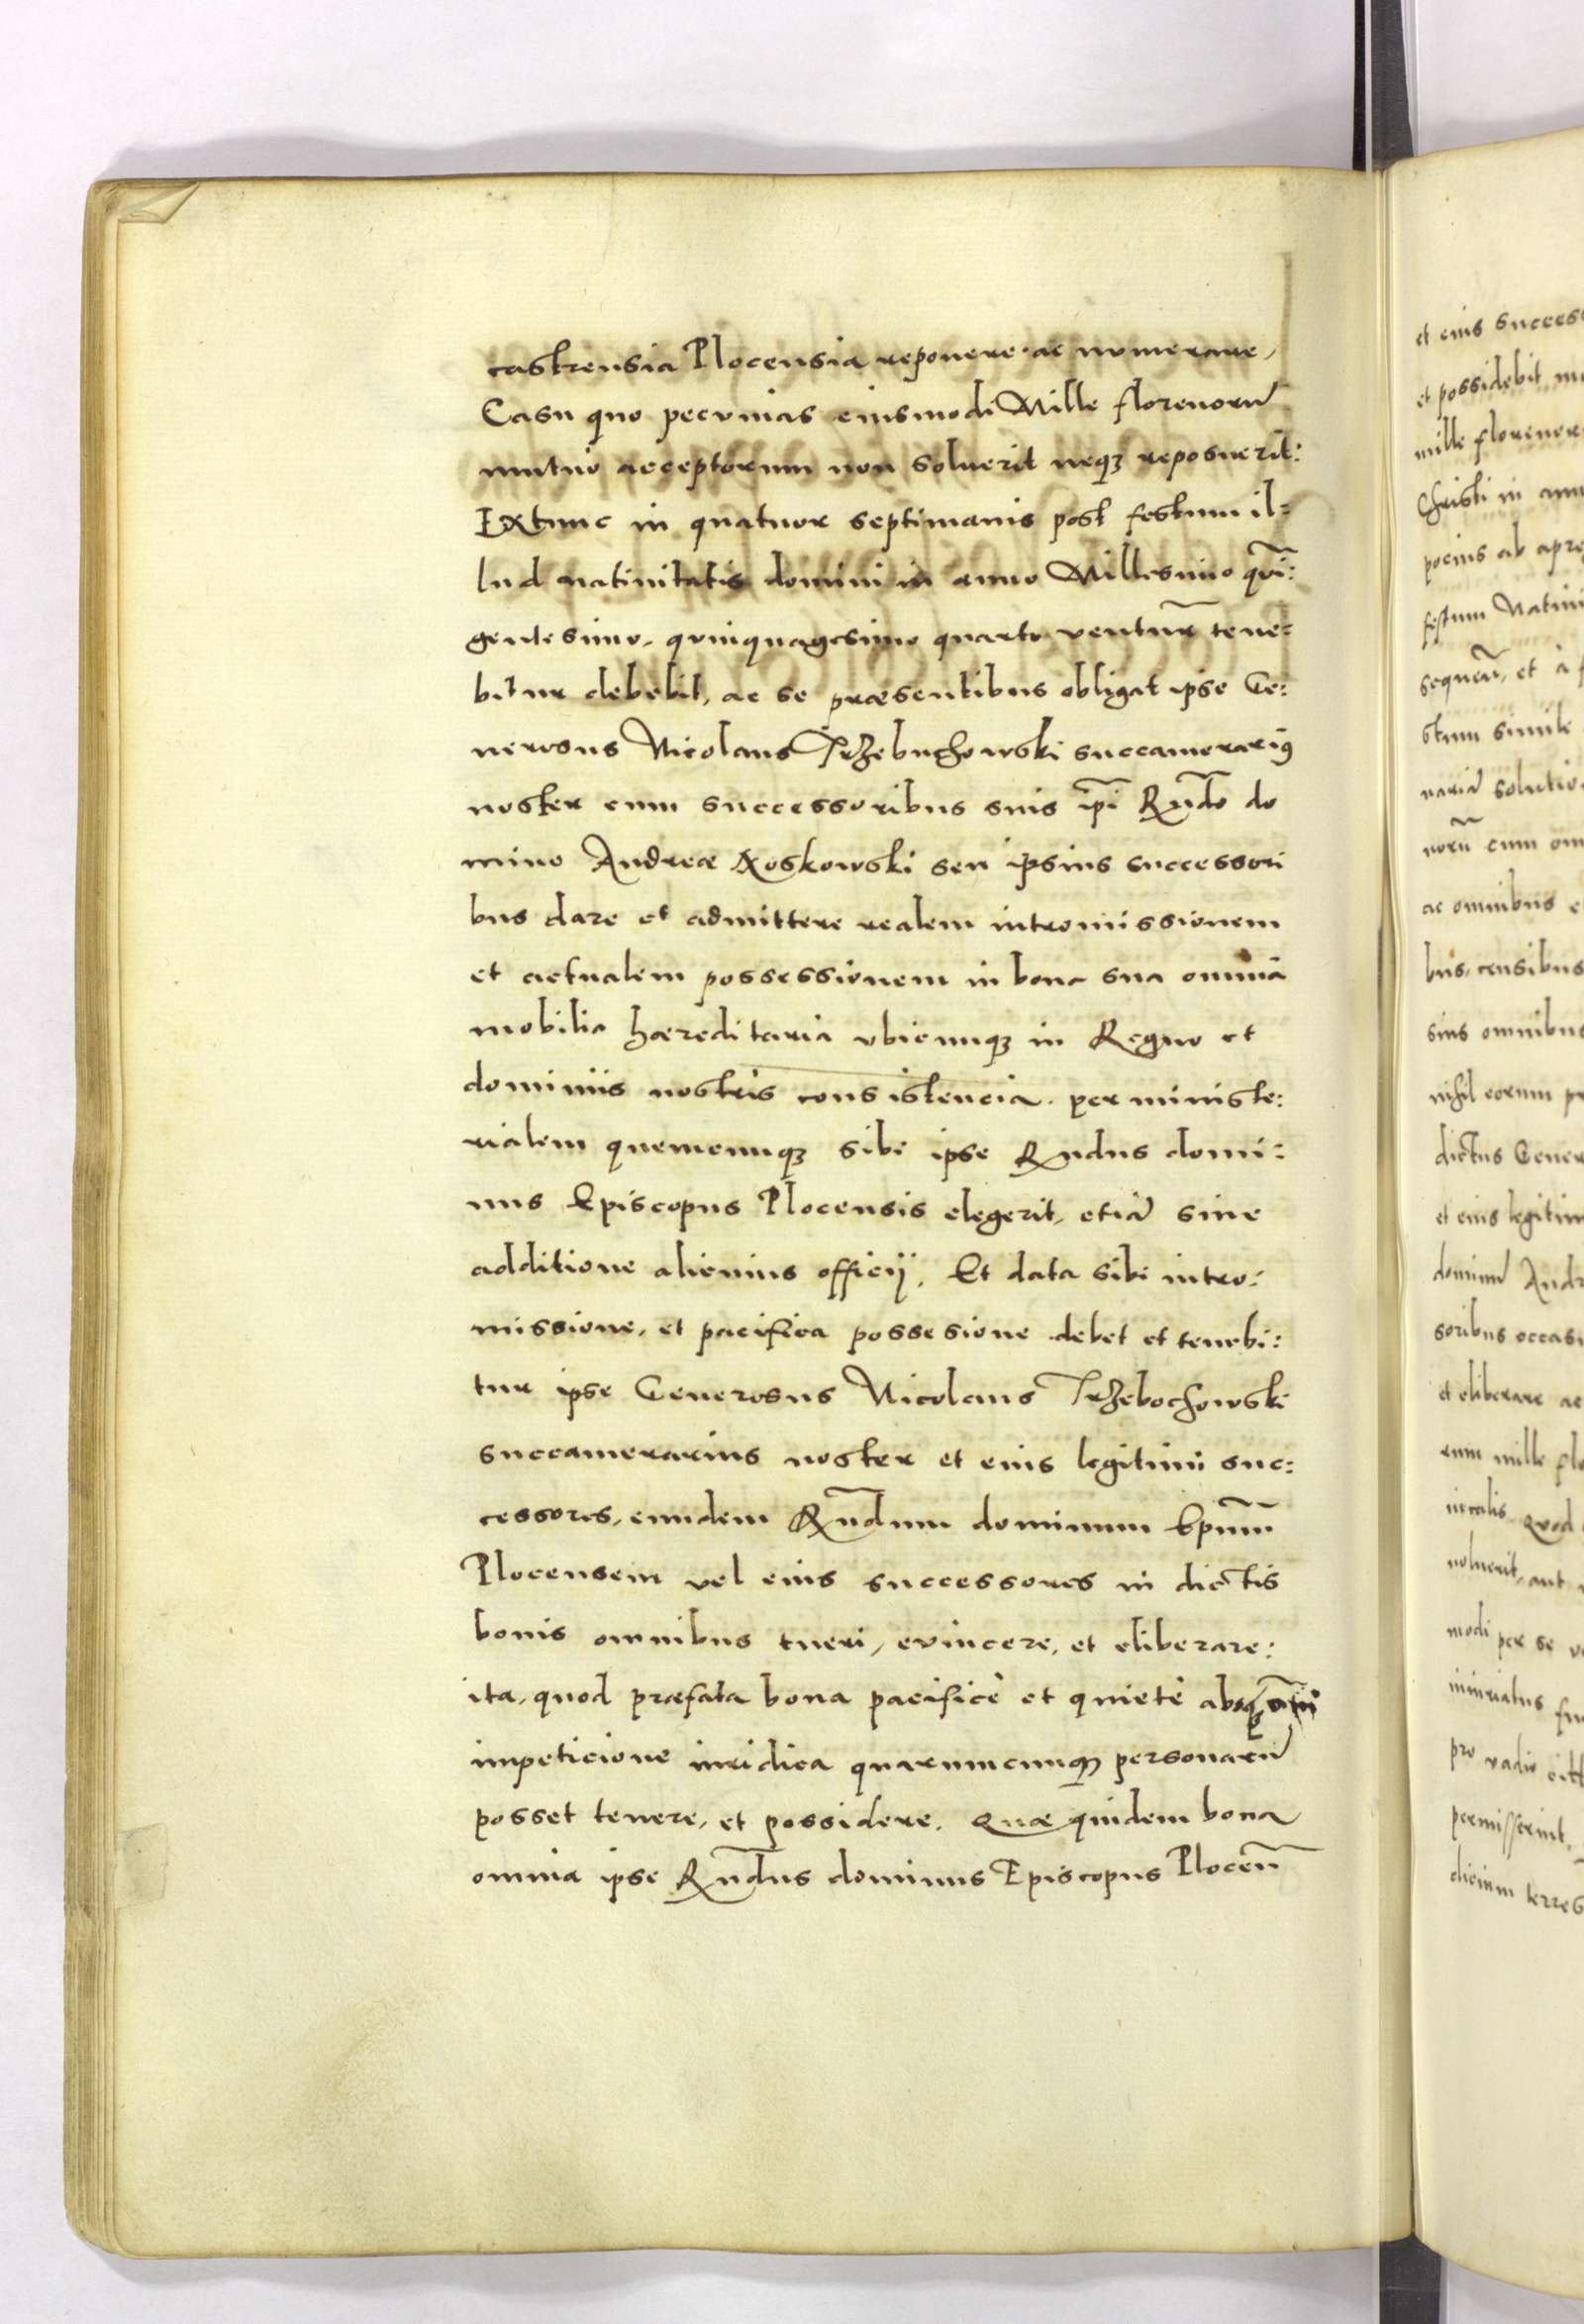 castrensia Plocensia reponere ac numerare,
Casu quo pecunias eiusmodi Mille florenorū
mutuo acceptorum non soluerit neqȝ reposuerit:
Extunc in quatuor septimanis post festum il=
lud natiuitatis domini in anno Millesimo qui̅:
gentesimo, quinquagesimo quarto venturū tene=
bitur debebit, ac se præsentibus obligat ipse Ge:
nerosus Nicolaus Trzebuchowski succamerariꝯ
noster cum successoribus suis ip̅i Rn̅do do
mino Andreæ Noskowski seu ipsius successori
bus dare et admittere realem intromissionem
et actualem possessionem in bona sua omnia
mobilia hæreditaria vbicunqȝ in Regno et
dominiis nostris consistencia. per ministe:
rialem quemcunqȝ sibi ipse Rndus domi:
nus Episcopus Plocensis elegerit, etiā sine
additione alicuius officij. Et data sibi intro:
missione, et pacifica possesione debet et tenebi:
tur ipse Generosus Nicolaus Trzebochowski
succamerarius noster et eius legitimi suc:
cessores, eundem Rn̅dum dominum Ep̅um
Plocensem vel eius successores in dictis
bonis omnibus tueri, evincere, et eliberare:
ita, quod præfata bona pacificè et quietè absqȝ
impeticione iuridica quarumcunqȝ personarū
posset tenere, et possidere. Quæ quidem bona
omnia ipse Rn̅dus dominus Episcopus Plocen̅
et eius success
et possidebit
mille florenor
Christi in
pocius ab
festum Natiui
sequen̅, et à
stum simile
nariā solutio
norū cum om
ac omnibus e
bus, censibus
siis omnibus
nihil eorum
dictus Gener
et eius legitim
dominū Andr
soribus occasi
et eliberare ac
rum mille flo
Quod
noluerit, aut
modi per se
pro vadio
permisserint,
dicium terres